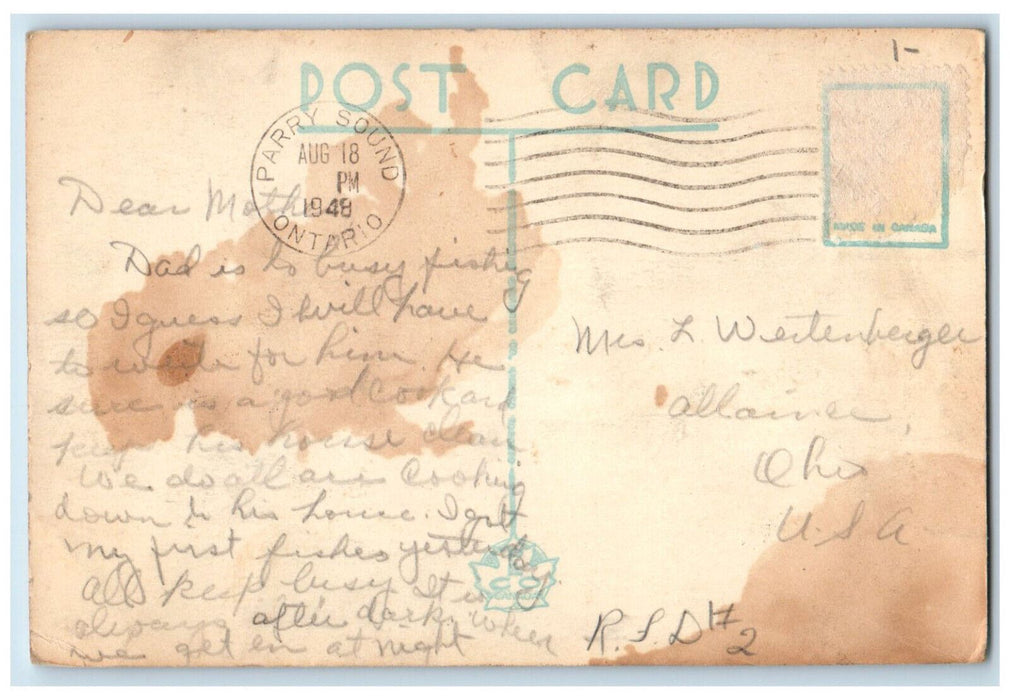 1-
POST CARD
PARRY SOUND
AUG 18
PM
1948
ONTARIO
MADE IN CANADA
Dear Mother
Dad is to busy fishing
so I guess I will have
to write for him. He
sure is a good cook and
keep his house clean
We do all are cooking
down to his house. I got
my first fishes yesterday
All keep busy. It is
always after dark when
we get in at night
Mrs. L Westenberger
allaince,
Ohio
U.S.A
R.F.D #2
CANADA